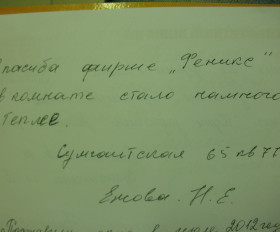 Спасиба фирме „Феникс"
в комнате стало намного
теплее.
Сумгаитская 65 кв 77
Ежова. Н. Е.
2012